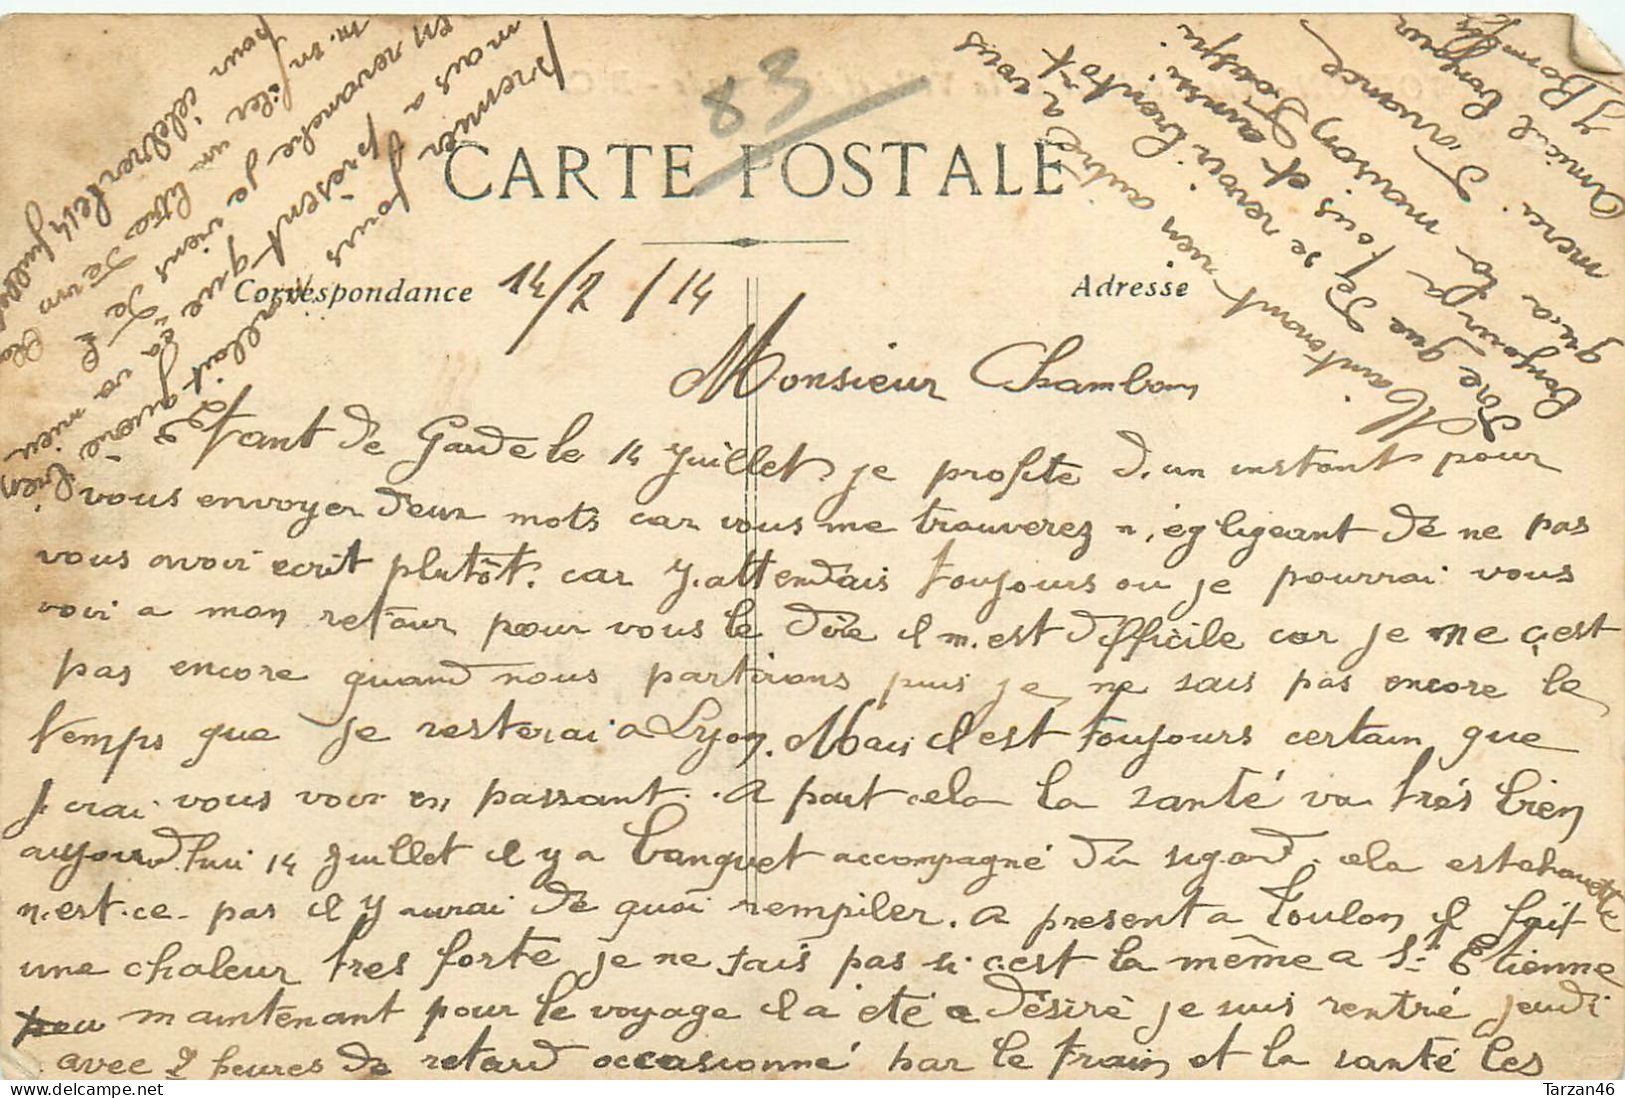 83
CARTE POSTALE
Correspondance 14/7/14 Adresse
Monsieur Chambon
Etant de Garde le 14 Juillet, je profite d'un instant pour
vous envoyer deux mots car vous me trouverez n,égligeant de ne pas
vous avoir ecrit plutôt. car j.attendais toujours ou je pourrai vous
voir a mon retour pour vous le dire il m.est difficile car je ne çest
pas encore quand nous partirons puis je ne sais pas encore le
temps que je resterai a Lyon. Mais il est toujours certain que
j irai vous voir en passant. A part cela la santé va trés bien
aujourd.hui 14 Juillet il y a banquet accompagné du sigard. cela est chouette
n.est.ce. pas il y aurai de quoi rempiler. A present a Toulon il fait
une chaleur tres forte je ne sais pas si c.est la même a St Etienne
maintenant pour le voyage il a été a désiré je suis rentré jeudi
avec 2 heures de retard occasionné par le train et la santé les
premier jours n'allait guère bien
mais a présent que ça va mieu
en revanche je viens de
m.en filer un litre de vin
pour célébrer le 14 Juillet
Maintenant rien autre a vous
dire que de se revoir bientôt
bonjour a tous et aussi
qu.a la maison Jousqu
merci. D'avance
Amical bonjour
J Bom
Tarzan46